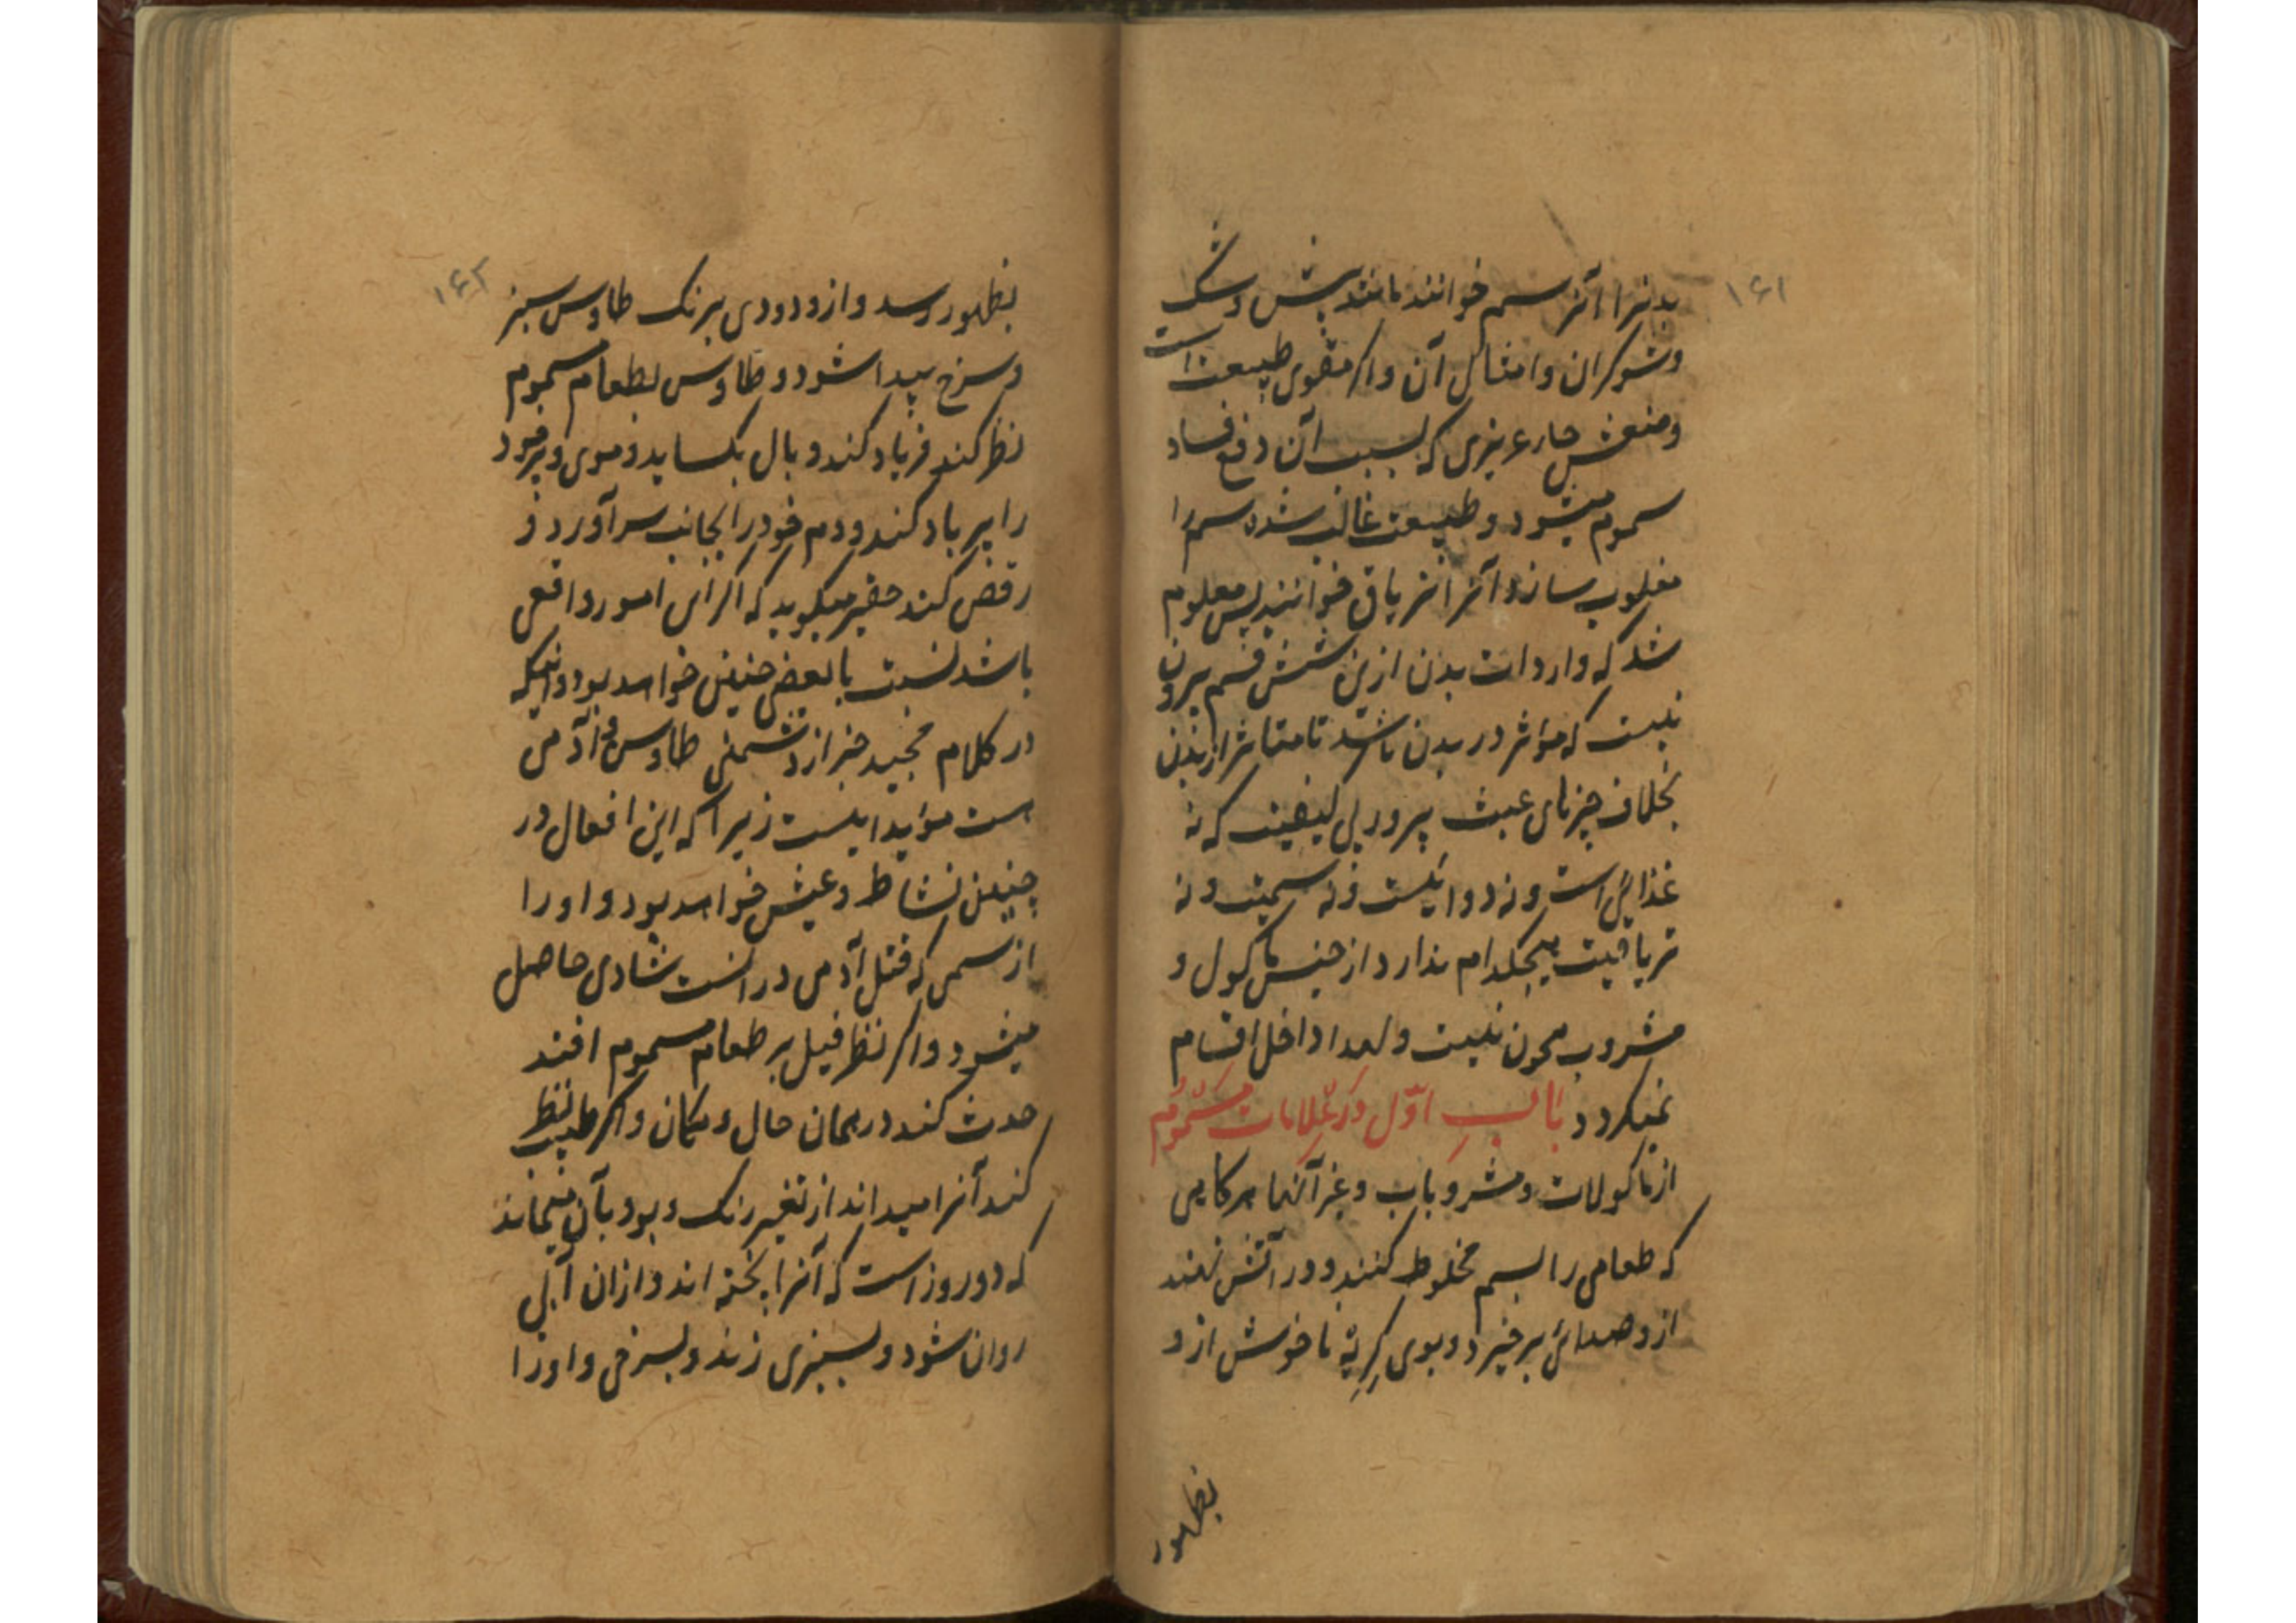 ۱۶۱
بدنرا آنرا سم خوانند مانند بیش و شک
و شوکران و امثال آن و اگر مقوی طبیعت است
و منعش حار غریزی که بسبب آن دفع فساد
سموم میشود و طبیعت غالب شده سم را
مغلوب سازد آنرا تریاق خوانند پس معلوم
شد که واردات بدن ازین شش قسم بیرون
نیست که مؤثر در بدن باشد تا متاثر از بدن
بخلاف چیزهای عبث پرور بی کیفیت که نه
غذائی است و نه دوائیست و نه سمیت و نه
تریاقیت هیچکدام ندارد از جنس ماکول و
مشروب چون نیست و لهذا داخل اقسام
نمیکردد باب اوّل در علامات مسموم
از ماکولات و مشروبات و غیر آنها هرکاهی
که طعامی را بسم مخلوط کنند و در آتش نهند
ازو صدائی برخیزد و بوی کریه ناخوش ازو
بظهور
۱۶۲
بظهور رسد و ازو دودی برنک طاوس سبز
و سرخ پیدا شود و طاوس بطعام مسموم
نظر کند فریاد کند و بال بکساید و موی و پر خود
را پر باد کند و دم خود را بجانب سر آورد و
رقص کند حقیر میکوید که اکر این امور واقعی
باشد نسبت با بعض چنین خواهد بود و انیکه
در کلام مجید خبر از دشمنی طاوس و آدمی
است مؤید اینست زیرا که این افعال در
چنین نشاط و عیش خواهد بود و او را
از سمی که قتل آدمی در انست شادی حاصل
میشود و اکر نظر فیل بر طعام مسموم افتد
حدث کند در همان حال و مکان و اکر طبیب نظر
کند آنرا میداند از تغیر رنک و بو و بآن میماند
که دو روز است که آنرا پخته اند و ازان آبی
روان شود و بسبزی زند و بسرخی و او را